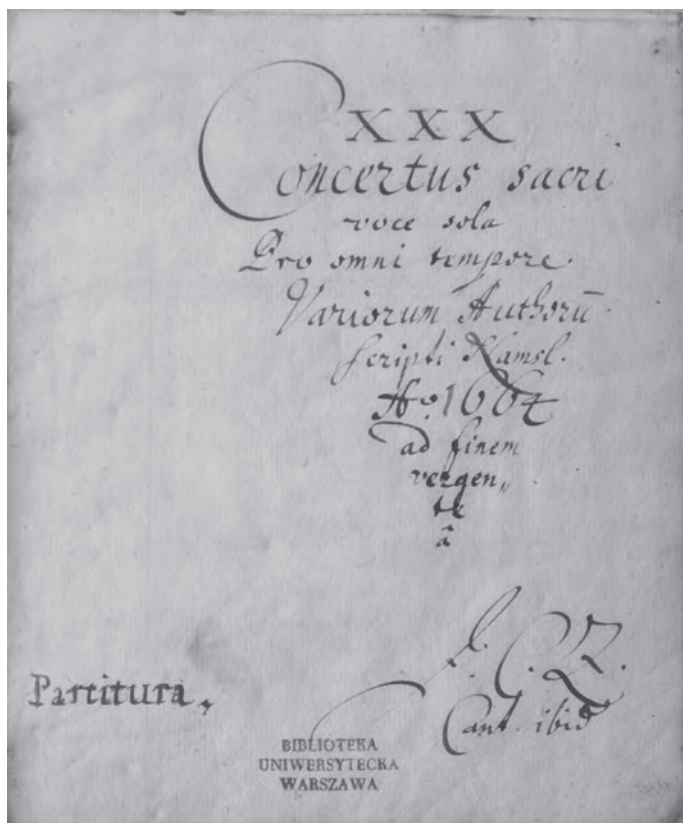 XXX
Concertus sacri
voce sola
Pro omni tempore.
Variorum Authorū
scripti Namsl.
Aō. 1664
ad finem
vergen„
te
â
Partitura„
Cant. ibid
BIBLIOTEKA
UNIWERSYTECKA
WARSZAWA